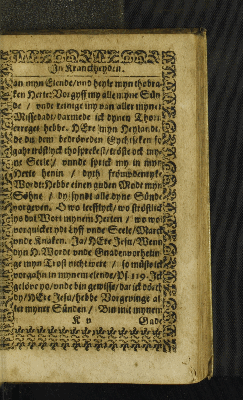 In Kranckheyden.
an myn Elende / vnd heyle myn thobra-
ken Herte: Vorgyff my alle myne Sün-
de / vnde reinige my van aller myner
Missedadt / darmede ick dynen Thorn
erreget hebbe. HEre myn Heylandt,
de du dem bedröveden Gychtbreken so
gahr tröstlick thosprekest / tröste ock my-
ne Seele / vnde sprick my in myn
Herte henin / dyth fröwdenryke
Wordt: Hebbe einen guden Modt myn
Söhne / dy syndt alle dyne Sünde
vorgeven. O wo leefflick / wo tröstlick
ys dat Wort mynem Herten / wo wol
vorquicket ydt Lyff vnde Seele / Marck
vnde Knaken. Ja / HEre Jesu / Wenn
dyn H. Wordt vnde Gnadenvorheitin-
ge myn Trost nicht were / so müste ick
vorgahn in mynem elende / Ps. 119. Ick
gelöve yo / vnde bin gewisse / dat ick dörch
dy / HEre Jesu / hebbe Vorgevinge al-
ler myner Sünden / Bin mit mynem
K v Gade